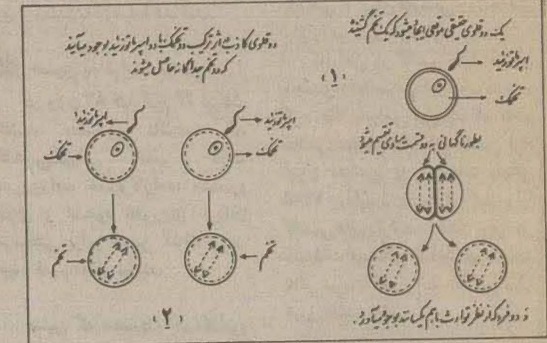 یک دوقلوی حقیقی موقعی ایجاد میشود که یک تخم گشنیده
اسپرماتوزئید
تخمک
(۱)
بطور ناگهانی به دو قسمت مساوی تقسیم شود
و دو فرد که از نظر توارث باهم یکسانند بوجود میآورد.
دوقلوی کاذب در اثر ترکیب دو تخمک با دو اسپرماتوزئید بوجود میآیند
که دو تخم جداگانه حاصل میشوند
اسپرماتوزئید
تخمک
اسپرماتوزئید
تخمک
تخم
تخم
(۲)